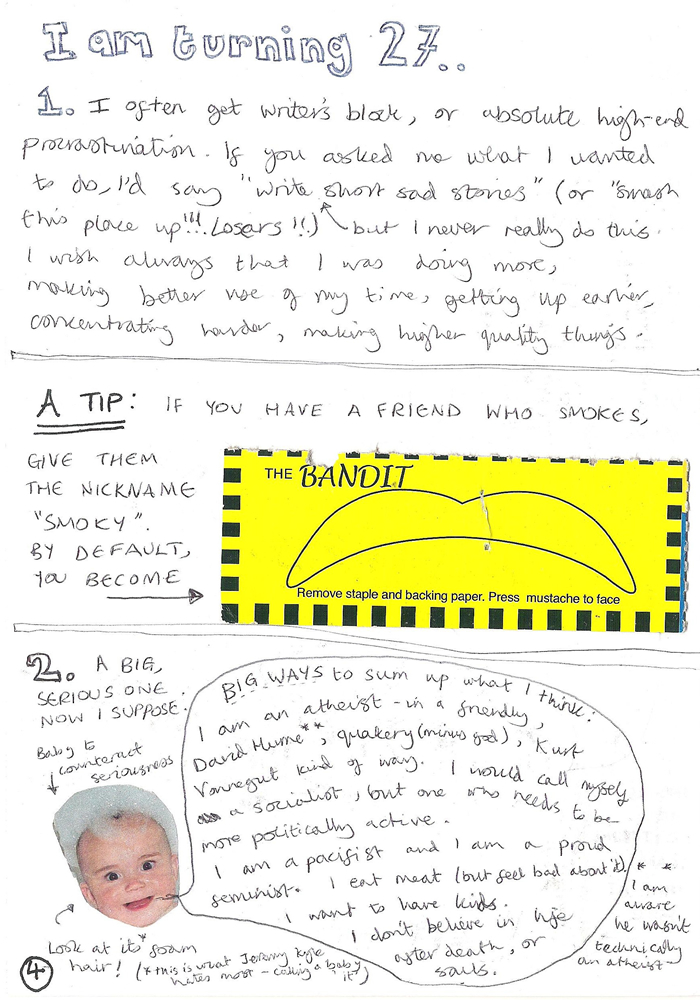 I am turning 27..
1. I often get writer's block, or absolute high-end
procrastination. If you asked me what I wanted
to do, I'd say "write short sad stories" (or "smash
this place up!!! Losers!!) but I never really do this.
I wish always that I was doing more,
making better use of my time, getting up earlier,
concentrating harder, making higher quality things.
A TIP: IF YOU HAVE A FRIEND WHO SMOKES,
GIVE THEM
THE NICKNAME
"SMOKY".
BY DEFAULT,
YOU BECOME
THE BANDIT
Remove staple and backing paper. Press mustache to face
2. A BIG,
SERIOUS ONE.
NOW I SUPPOSE.
Baby to
counteract
seriousness
BIG WAYS to sum up what I think:
I am an atheist - in a friendly,
David Hume**, quakery (minus god), Kurt
Vonnegut kind of way. I would call myself
a socialist, but one who needs to be
more politically active.
I am a pacifist and I am a proud
feminist. I eat meat (but feel bad about it).
I want to have kids.
I don't believe in life
after death, or
souls.
** I am
aware
he wasn't
technically
an atheist
Look at its* foam
hair! (*this is what Jeremy Kyle
hates most - calling a baby 'it')
4